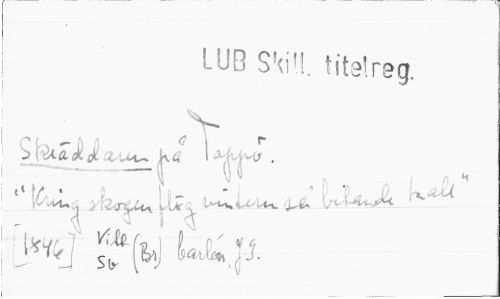 LUB Skill. titelreg.
Skräddaren på Tappö.
"Kring skogen flög vintern så bitande kall"
[1846] Vill (Br) Carlén, J.G.
Sv